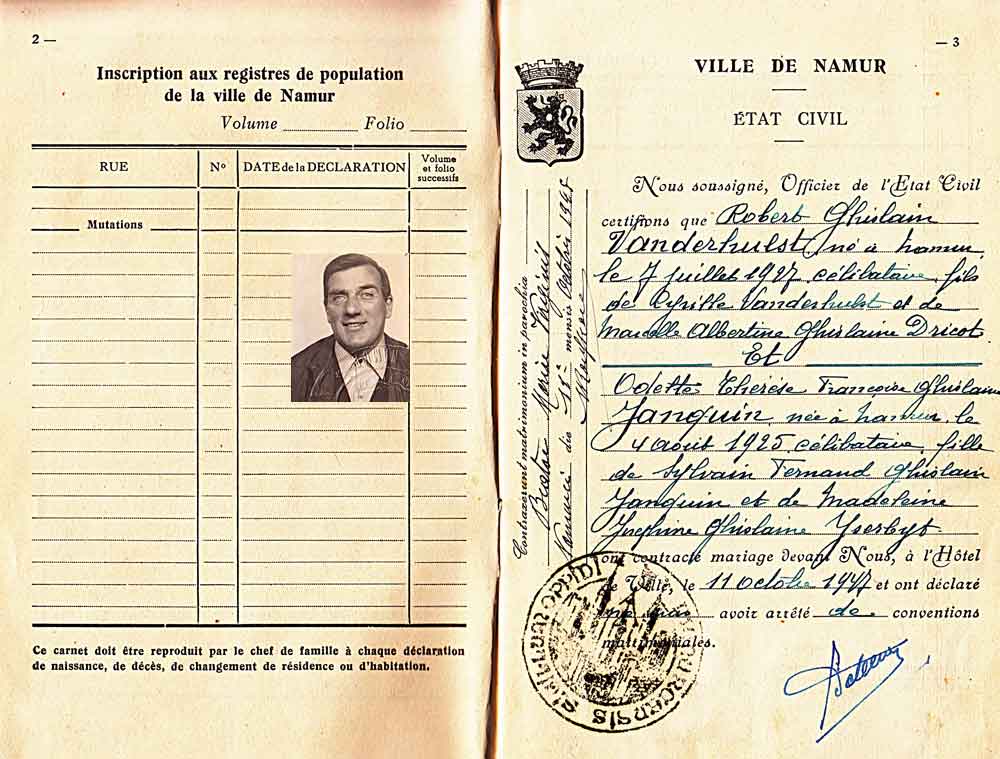 2 —
Inscription aux registres de population
de la ville de Namur
Volume Folio
RUE
N°
DATE de la DECLARATION
Volume
et folio
successifs
Mutations
Ce carnet doit être reproduit par le chef de famille à chaque déclaration
de naissance, de décès, de changement de résidence ou d'habitation.
— 3
VILLE DE NAMUR
ÉTAT CIVIL
Contraxerunt matrimonium in parochia
Beatae Mariae
Namurci die 11a mensis Octobris
Nous soussigné, Officier de l'Etat Civil
certifions que Robert Ghislain
Vanderhulst, né à Namur,
le 7 juillet 1927, célibataire, fils
de Cyrille Vanderhulst et de
Marcelle Albertine Ghislaine Dricot
Et
Odette Thérèse Françoise Ghislaine
Janquin, née à Namur, le
4 août 1925, célibataire, fille
de Sylvain Fernand Ghislain
Janquin et de Madeleine
Joséphine Ghislaine Yserbyt
ont contracté mariage devant Nous, à l'Hôtel
de Ville, le 11 octobre 1947 et ont déclaré
avoir arrêté de conventions
matrimoniales.